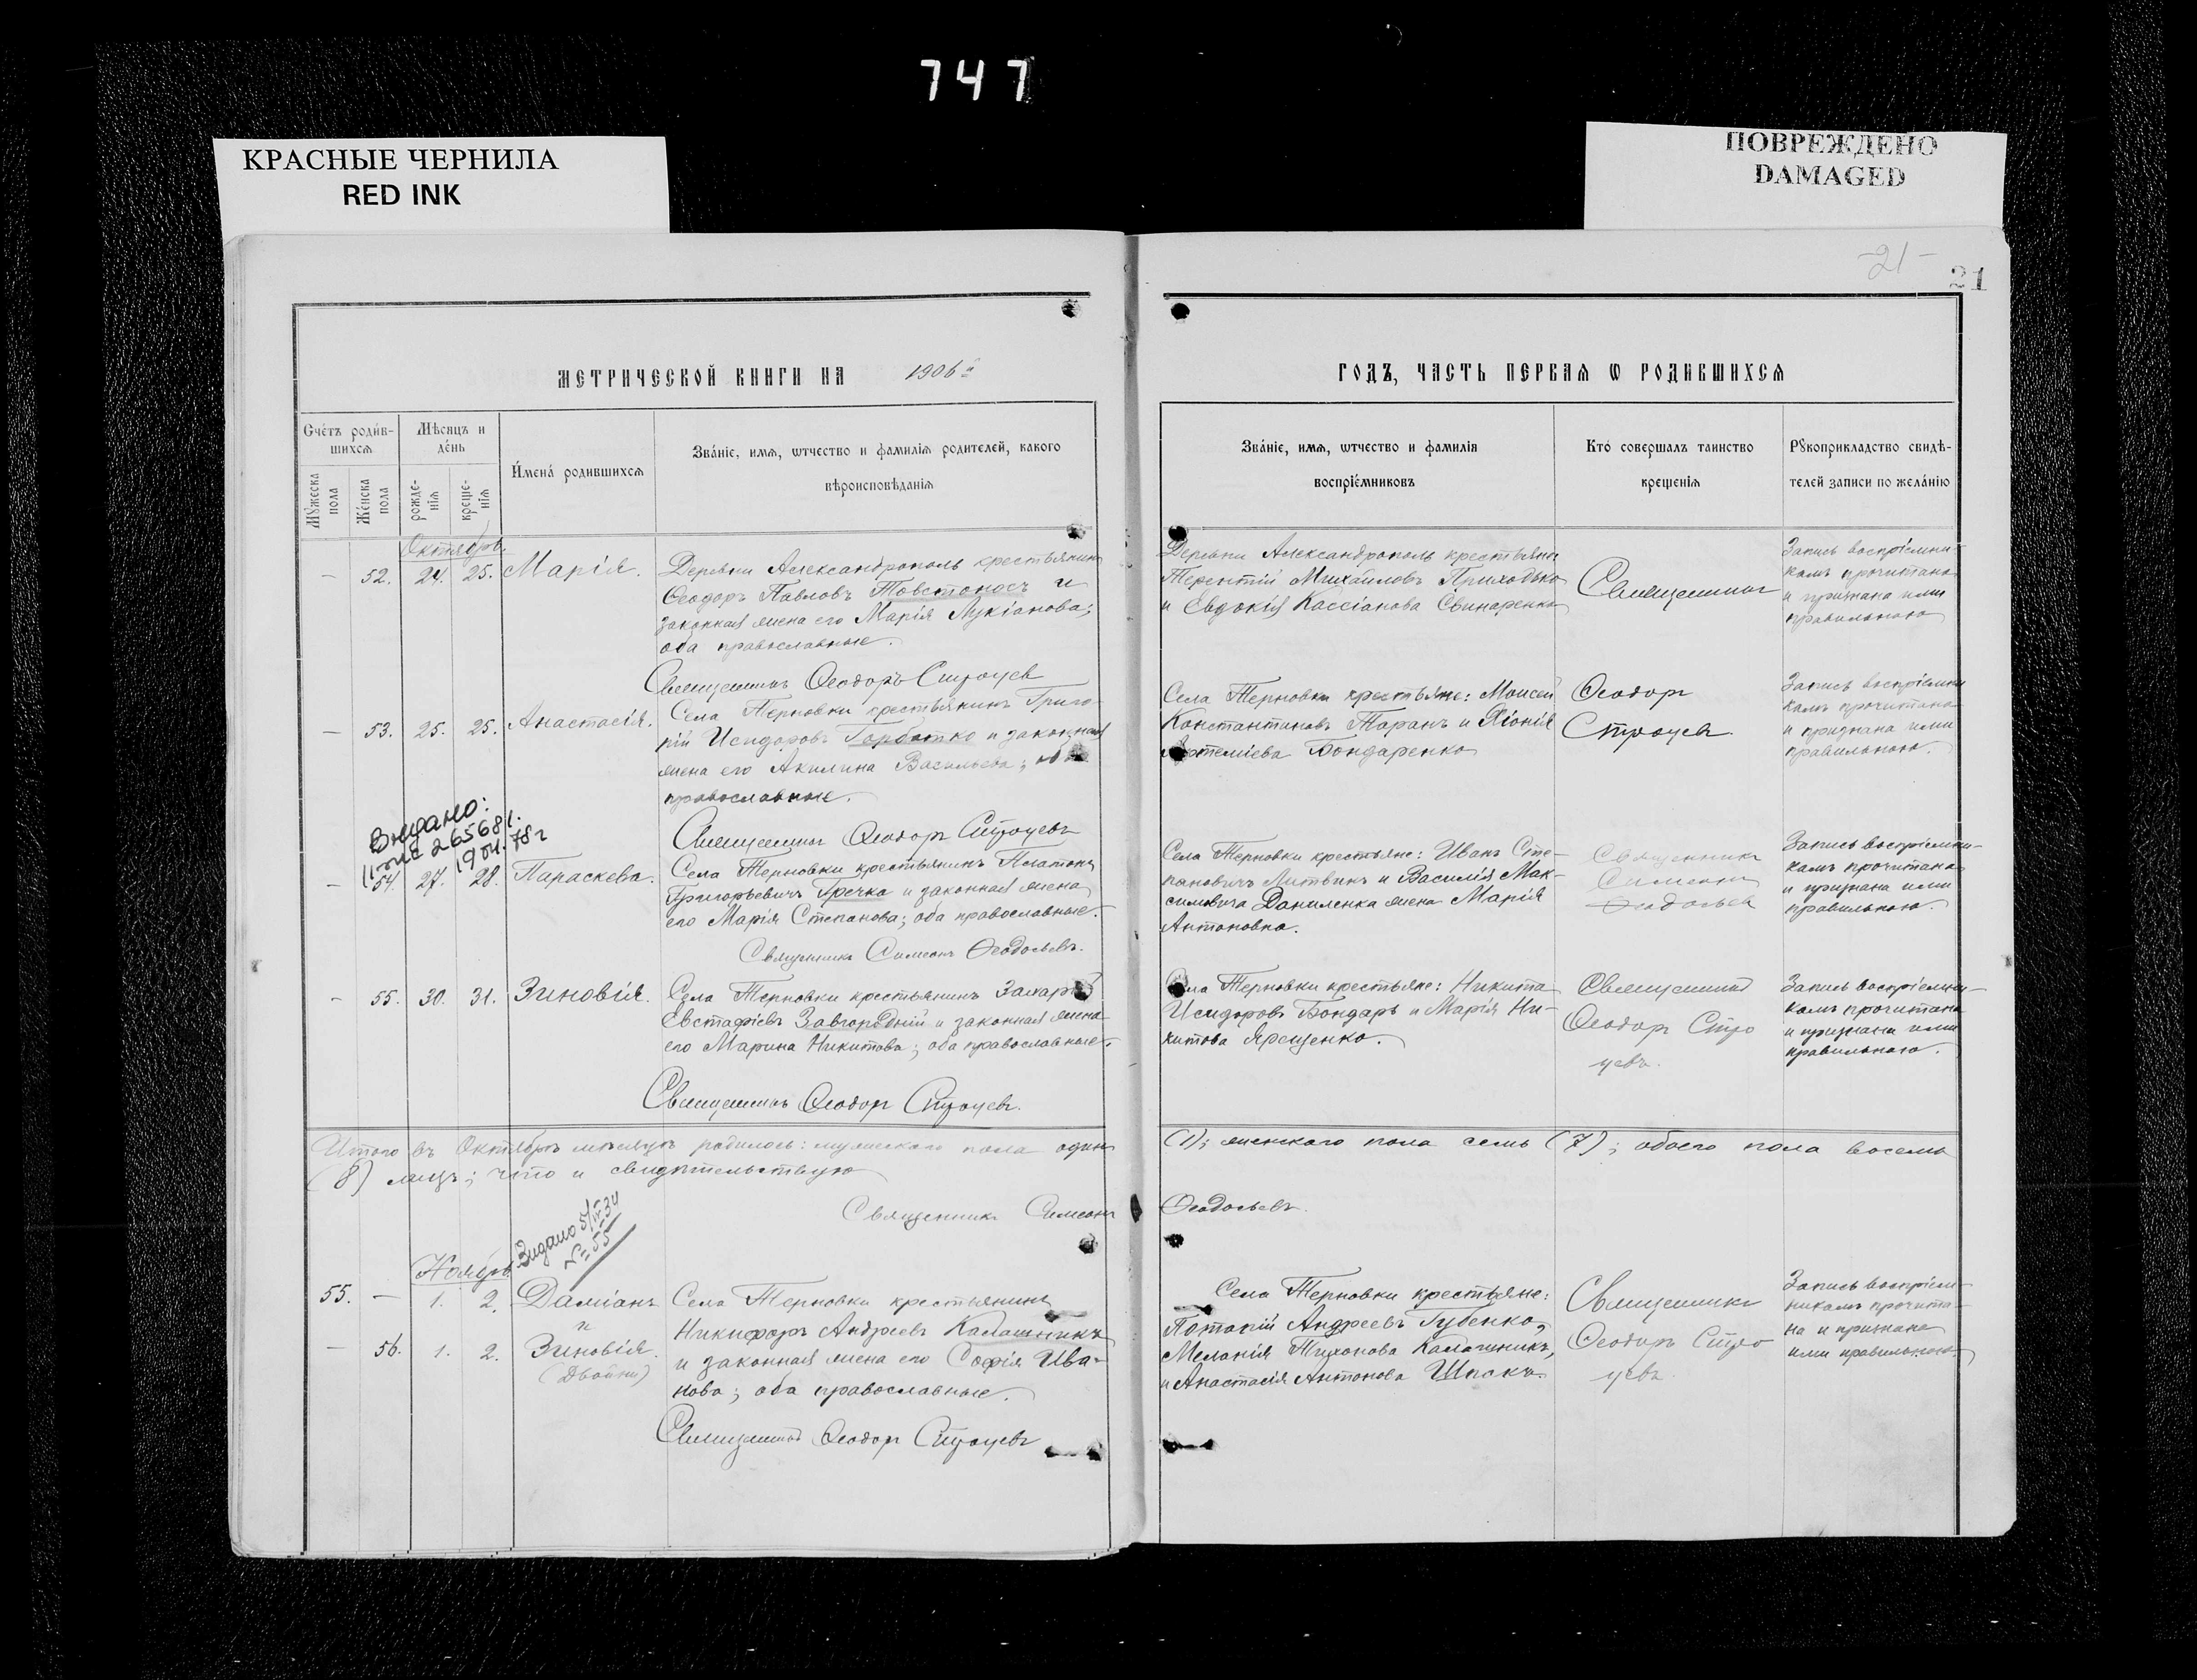 747
КРАСНЫЕ ЧЕРНИЛА
RED INK
ПОВРЕЖДЕНО
DAMAGED
-21-
21
МЕТРИЧЕСКОЙ КНИГИ НА 1906й
ГОДЪ, ЧАСТЬ ПЕРВАѦ Ѡ РОДИВШИХСѦ
Счетъ родив-
шихсѧ
Мꙋжеска
пола
Женска
пола
Мѣсяцъ и
день
рожде-
нїѧ
креще-
нїѧ
Имена родившихсѧ
Званїе, имѧ, ѡтчество и фамилїѧ родителей, какого
вѣроисповѣданїѧ
Званїе, имѧ, ѡтчество и фамилїѧ
воспрїемниковъ
Кто совершалъ таинство
крещенїѧ
Рꙋкоприкладство свидѣ-
телей записи по желанїю
Октябрь.
— 52. 24. 25. Марія.
Деревни Александрополь крестьянинъ
Ѳеодоръ Павловъ Товстоносъ и
законная жена его Марія Лукіанова;
оба православные.
Священникъ Ѳеодоръ Строцев
Деревни Александрополь крестьяне
Терентій Михайловъ Приходько
и Евдокія Кассіанова Свинаренко
Священникъ
Запись воспріемни-
камъ прочитана
и признана ими
правильною
— 53. 25. 25. Анастасія.
Села Терновки крестьянинъ Григо-
рій Исидоровъ Горбатко и законная
жена его Акилина Васильева; оба
православные.
Священникъ Ѳеодоръ Строцевъ
Села Терновки крестьяне: Моисей
Константиновъ Таранъ и Хіонія
Артеміева Бондаренко
Ѳеодоръ
Строцев.
Запись воспріемни
камъ прочитана
и признана ими
правильною.
Видано:
265681.
19 78г
— 54. 27. 28. Параскева.
Села Терновки крестьянинъ Платонъ
Григорьевичъ Гречка и законная жена
его Марія Степанова; оба православные.
Священникъ Симеонъ Ѳеодосьевъ.
Села Терновки крестьяне: Иванъ Сте-
пановичъ Литвинъ и Василія Мак-
симовича Даниленка жена Марія
Антоновна.
Священникъ
Симеонъ
Ѳеодосьев
Запись воспріемни-
камъ прочитана
и признана ими
правильною.
— 55. 30. 31. Зиновія.
Села Терновки крестьянинъ Захарій
Евстафіевъ Завгородній и законная жена
его Марина Никитова; оба православные.
Священникъ Ѳеодоръ Строцев.
Села Терновки крестьяне: Никита
Исидоровъ Бондарь и Марія Ни-
китова Ярещенко.
Священникъ
Ѳеодоръ Стро
цевъ.
Запись воспріемни-
камъ прочитана
и признана ими
правильною.
Итого въ Октябрѣ мѣсяцѣ родилось: мужескаго пола одинъ (1); женскаго пола семь (7); обоего пола восемь
(8) лицъ; что и свидѣтельствую
Священникъ Симеонъ Ѳеодосьевъ.
Видано 5/IV 34
№ 55
Ноябрь
55. — 1. 2. Даміанъ
и
— 56. 1. 2. Зиновія.
(Двойни)
Села Терновки крестьянинъ
Никифоръ Андреевъ Калашникъ
и законная жена его Софія Ива-
нова; оба православные.
Священникъ Ѳеодоръ Строцевъ
Села Терновки крестьяне:
Потапій Андреевъ Губенко,
Меланія Тихонова Калашникъ,
и Анастасія Антонова Шпакъ.
Священникъ
Ѳеодоръ Стро
цевъ.
Запись воспріем-
никамъ прочита-
на и признана
ими правильною